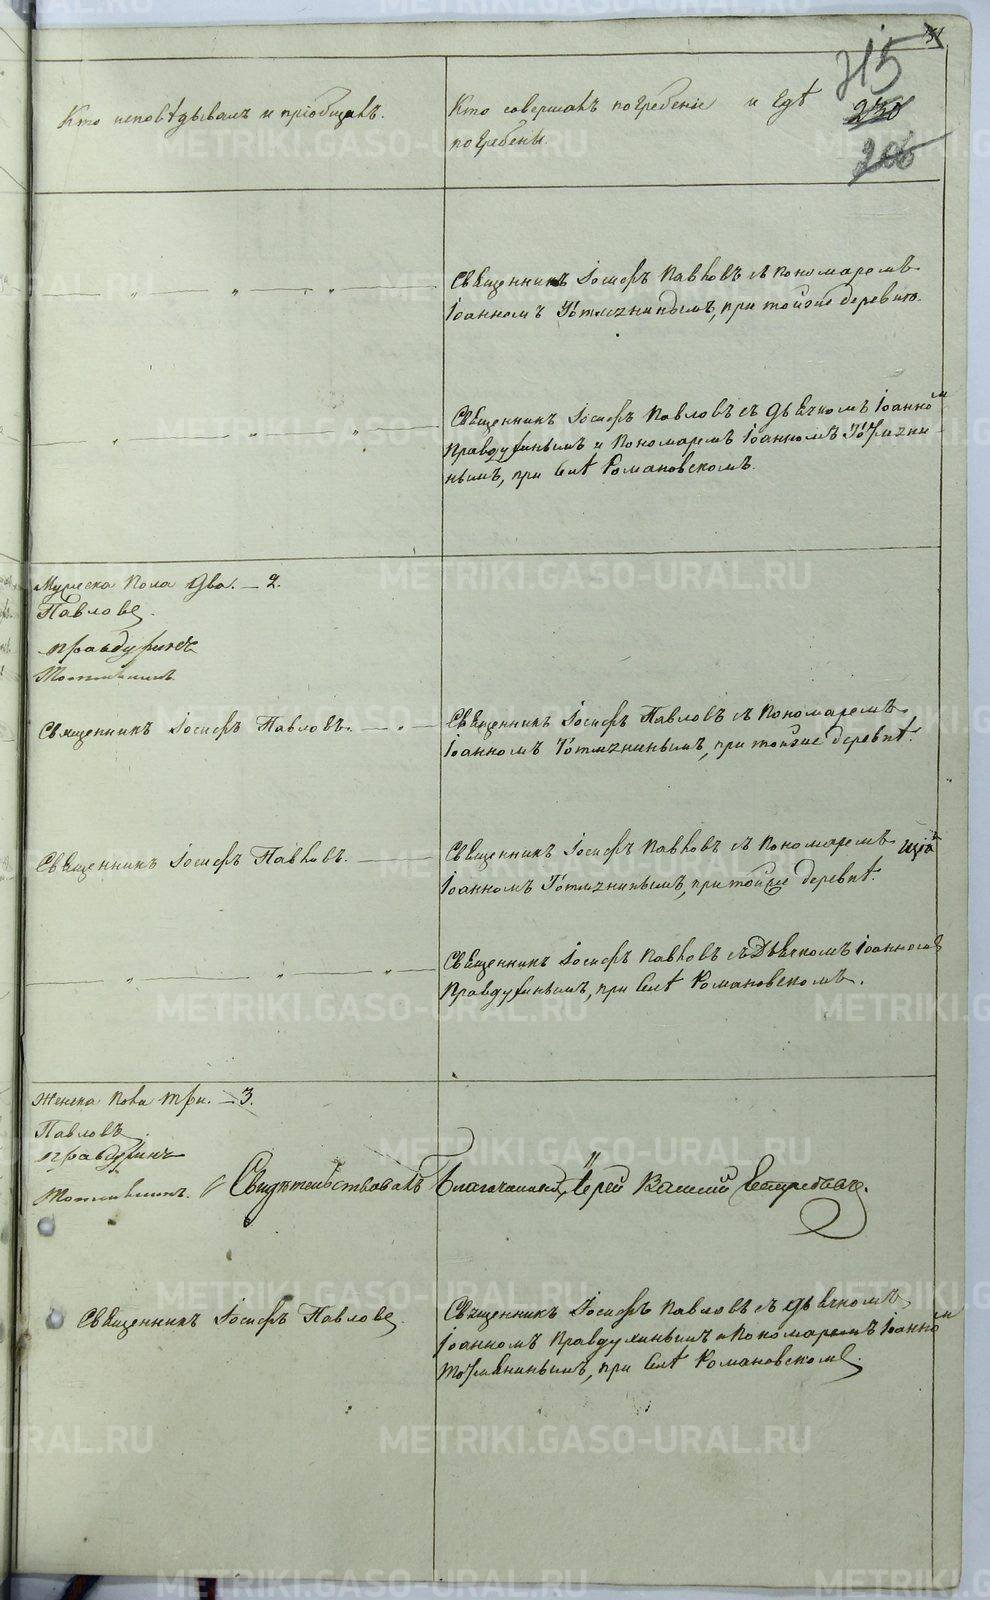 315
230
206
Кто исповѣдывалъ и пріобщалъ.
Кто совершалъ погребеніе и гдѣ
погребены.
Священникъ Іосифъ Павловъ съ пономаремъ
Іоанномъ при тойже деревнѣ.
Священникъ Іосифъ Павловъ съ дьячкомъ Іоанном
Правдухинымъ и Пономаремъ Іоанномъ
нымъ, при селѣ Романовскомъ.
Мужеска пола два. — 2.
Павловъ.
Правдухинъ
Священникъ Іосифъ Павловъ.
Священникъ Іосифъ Павловъ съ Пономаремъ
Іоанномъ при тойже деревнѣ.
Священникъ Іосифъ Павловъ.
Священникъ Іосифъ Павловъ съ Пономаремъ
Іоанномъ при тойже деревнѣ.
Священникъ Іосифъ Павловъ съ Дьячкомъ Іоанномъ
Правдухинымъ, при селѣ Романовскомъ.
Женска пола три. — 3.
Павловъ
Правдухинъ
Свидѣтельствовалъ Благочинный, Іерей Василій
Священникъ Іосифъ Павловъ
Священникъ Іосифъ Павловъ съ дьячкомъ
Іоанномъ Правдухинымъ и Пономаремъ Іоанном
при селѣ Романовскомъ.
METRIKI.GASO-URAL.RU